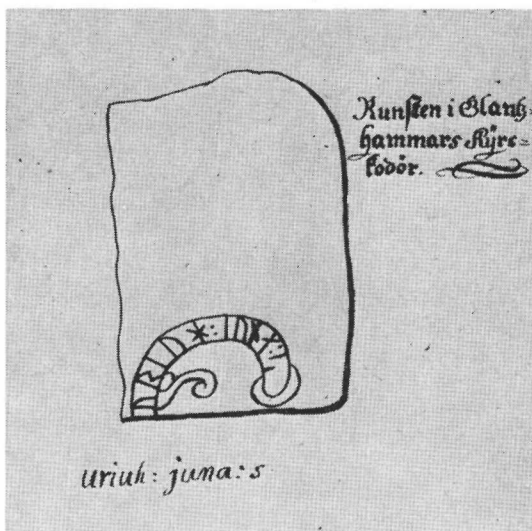 Runsten i Glantz=
hammars Kÿrc=
kodör.
uriuh: juna: s